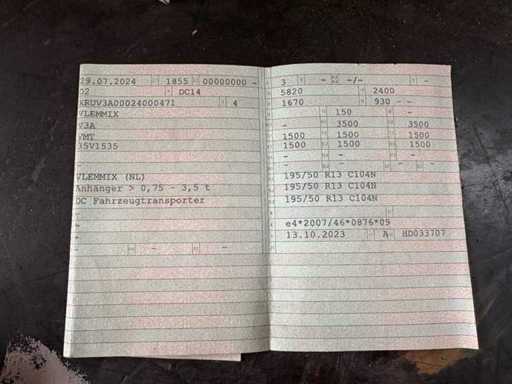 29.07.2024 1855 00000000 -
02 DC14
XRUV3A00024000471 4
VLEMMIX
V3A
VMT
35V1535
VLEMMIX (NL)
Anhänger > 0,75 - 3,5 t
DC Fahrzeugtransporter
- -
3 - -/- -
5820 2400
1670 930 - -
150 -
- 3500 3500
1500 1500 1500
1500 1500 1500
- - -
- - -
195/50 R13 C104N
195/50 R13 C104N
195/50 R13 C104N
e4*2007/46*0876*09
13.10.2023 A HD033707